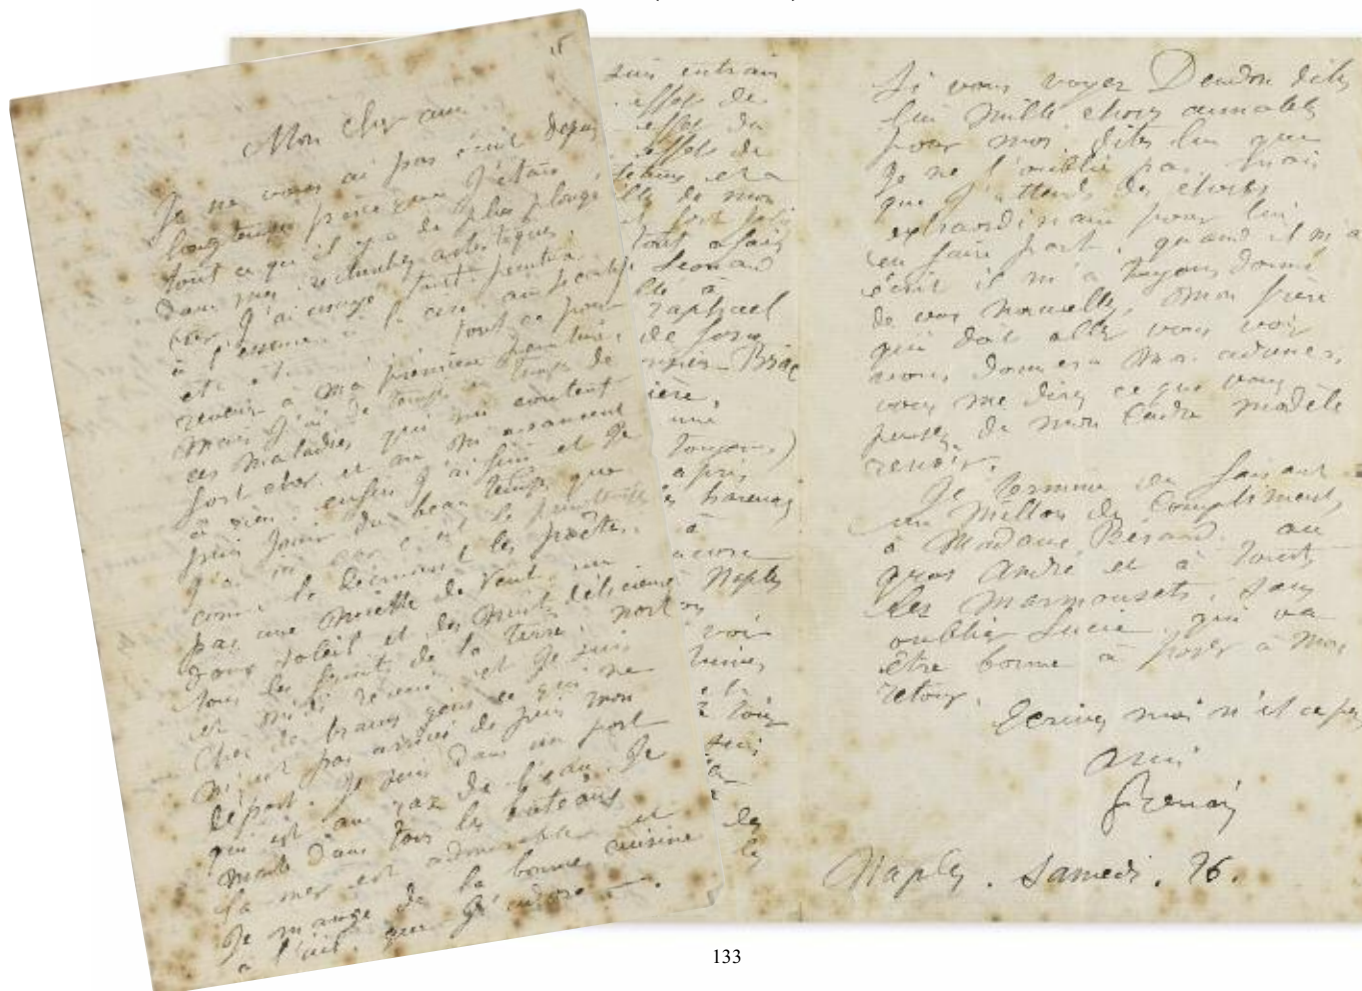 Mon cher ami
Je ne vous ai pas écrit depuis
longtemps parceque J'étais
tout ce qu'il y a de plus plongé
dans mes recherches artistiques.
car J'ai essayé toute peinture
à l'essence à la cire, au
et tout ça pour
revenir à ma première peinture.
Mais J'ai de temps en temps de
ces maladies qui me coutent
fort cher et ne m'avancent
à rien. enfin J'ai fini et Je
puis Jouir du beau temps que
J'ai ici car c'est le printemps
comme le décrivent les poètes.
pas une miette de vent. un
doux soleil et des nuits délicieuses
tous les fruits de la terre. nord
et midi réunis, et Je suis
chez de braves gens ce qui ne
m'est pas arrivé depuis mon
départ. Je suis dans un port
qui est au raz de l'eau. Je
monte dans tous les bateaux
la mer est admirable et
Je mange de la bonne cuisine
à l'ail que J'adore.
suis entrain
effets de
effets du
effets de
et a
de mon
fort joli
tout à fait
Leonard
à
raphael
de
Briac
une
toujours)
après
harengs
à
encore
Naples
voir
la
loin
suis
des
les
Si vous voyez Deudon dites
lui mille choses aimables
pour moi. dites lui que
Je ne l'oublie pas. mais
que J'attends des choses
extraordinaires pour lui
en faire part. quand il m'a
écrit il m'a toujours donné
de vos nouvelles. Mon frère
qui doit aller vous voir
vous donnera mon adresse,
vous me direz ce que vous
pensez de mon cadre modèle
renoir.
Je termine en faisant
un million de compliments
à Madame Bérard. au
gros André et à toutes
les marmousets, sans
oublier Lucie. qui va
être bonne à poser à mon
retour.
Ecrivez moi n'est ce pas
ami
Renoir
Naples. Samedi. 26.
133